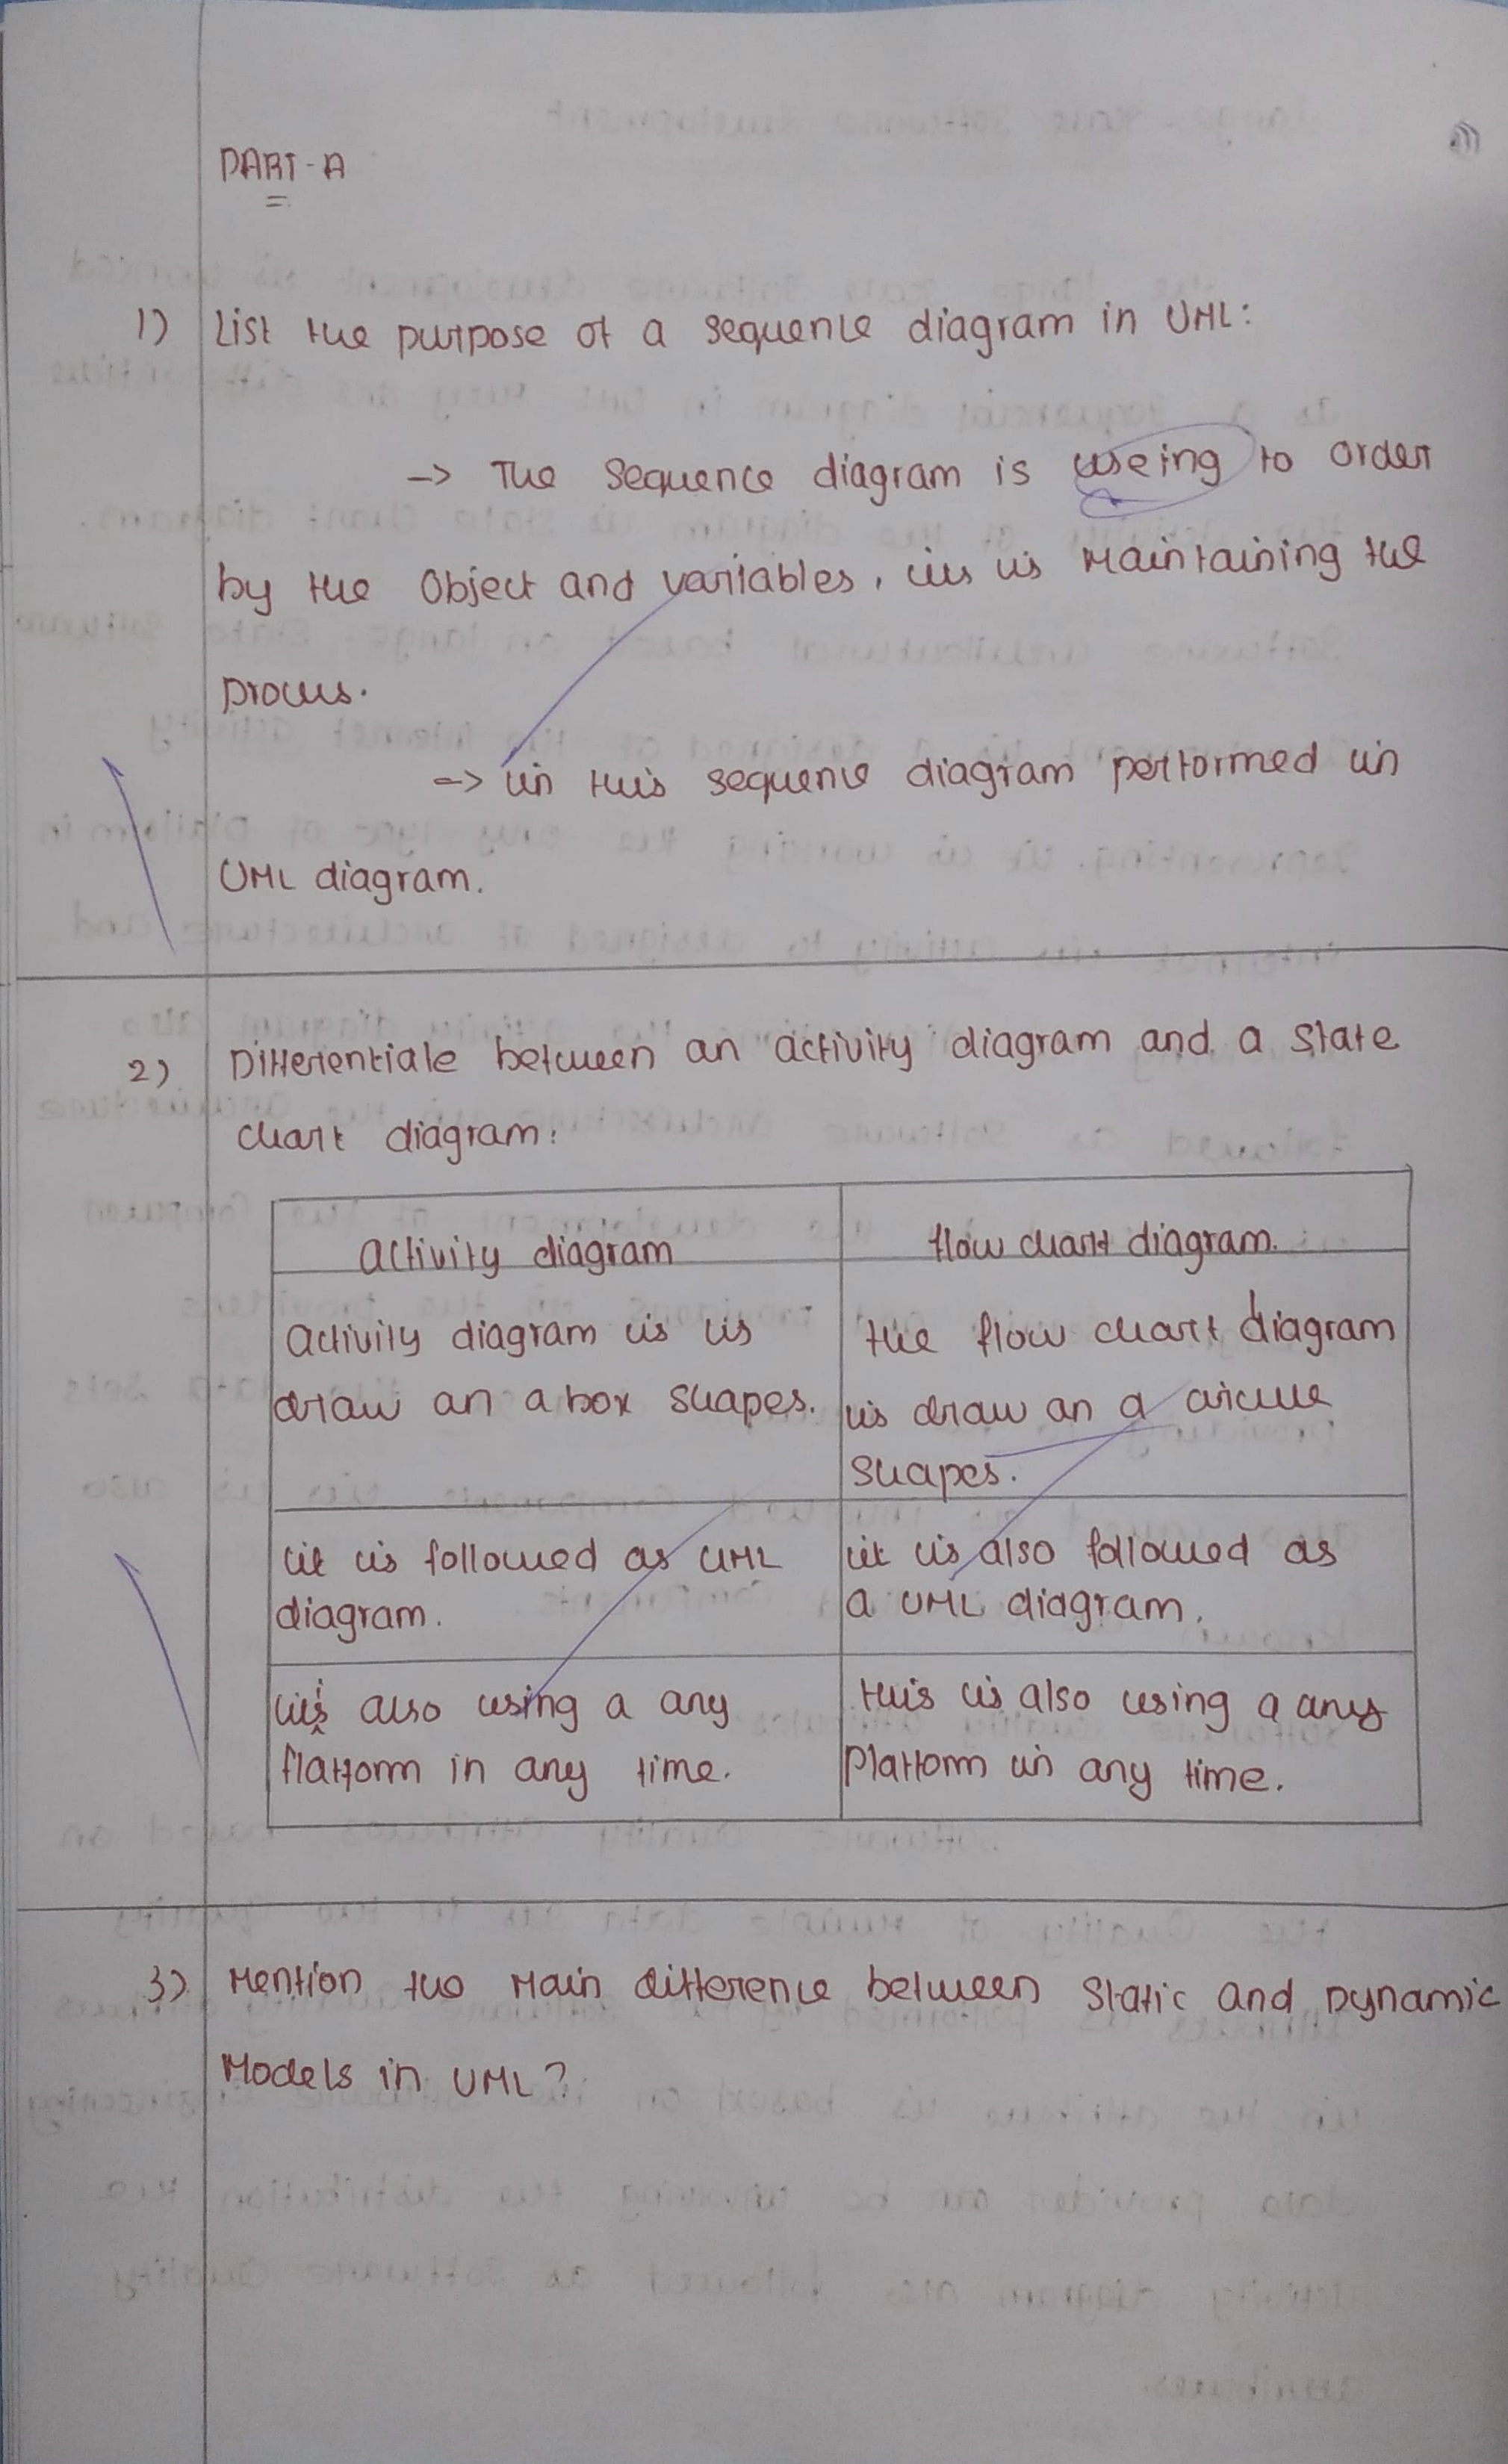 PART-A
1) List the purpose of a sequence diagram in UML:
-> The sequence diagram is useing to order
by the Object and variables, is Maintaining the
process.
-> in this sequence diagram performed in
UML diagram.
2) Differentiale between an activity diagram and a state
chart diagram:
Activity diagram
flow chart diagram.
Activity diagram is is
draw an a box shapes.
the flow chart diagram
is draw an a circle
shapes.
it is followed as UML
diagram.
it is also followed as
a UML diagram.
also using a any
flatform in any time.
this is also using a any
platform in any time.
3) Mention two Main difference between Static and Dynamic
Models in UML?